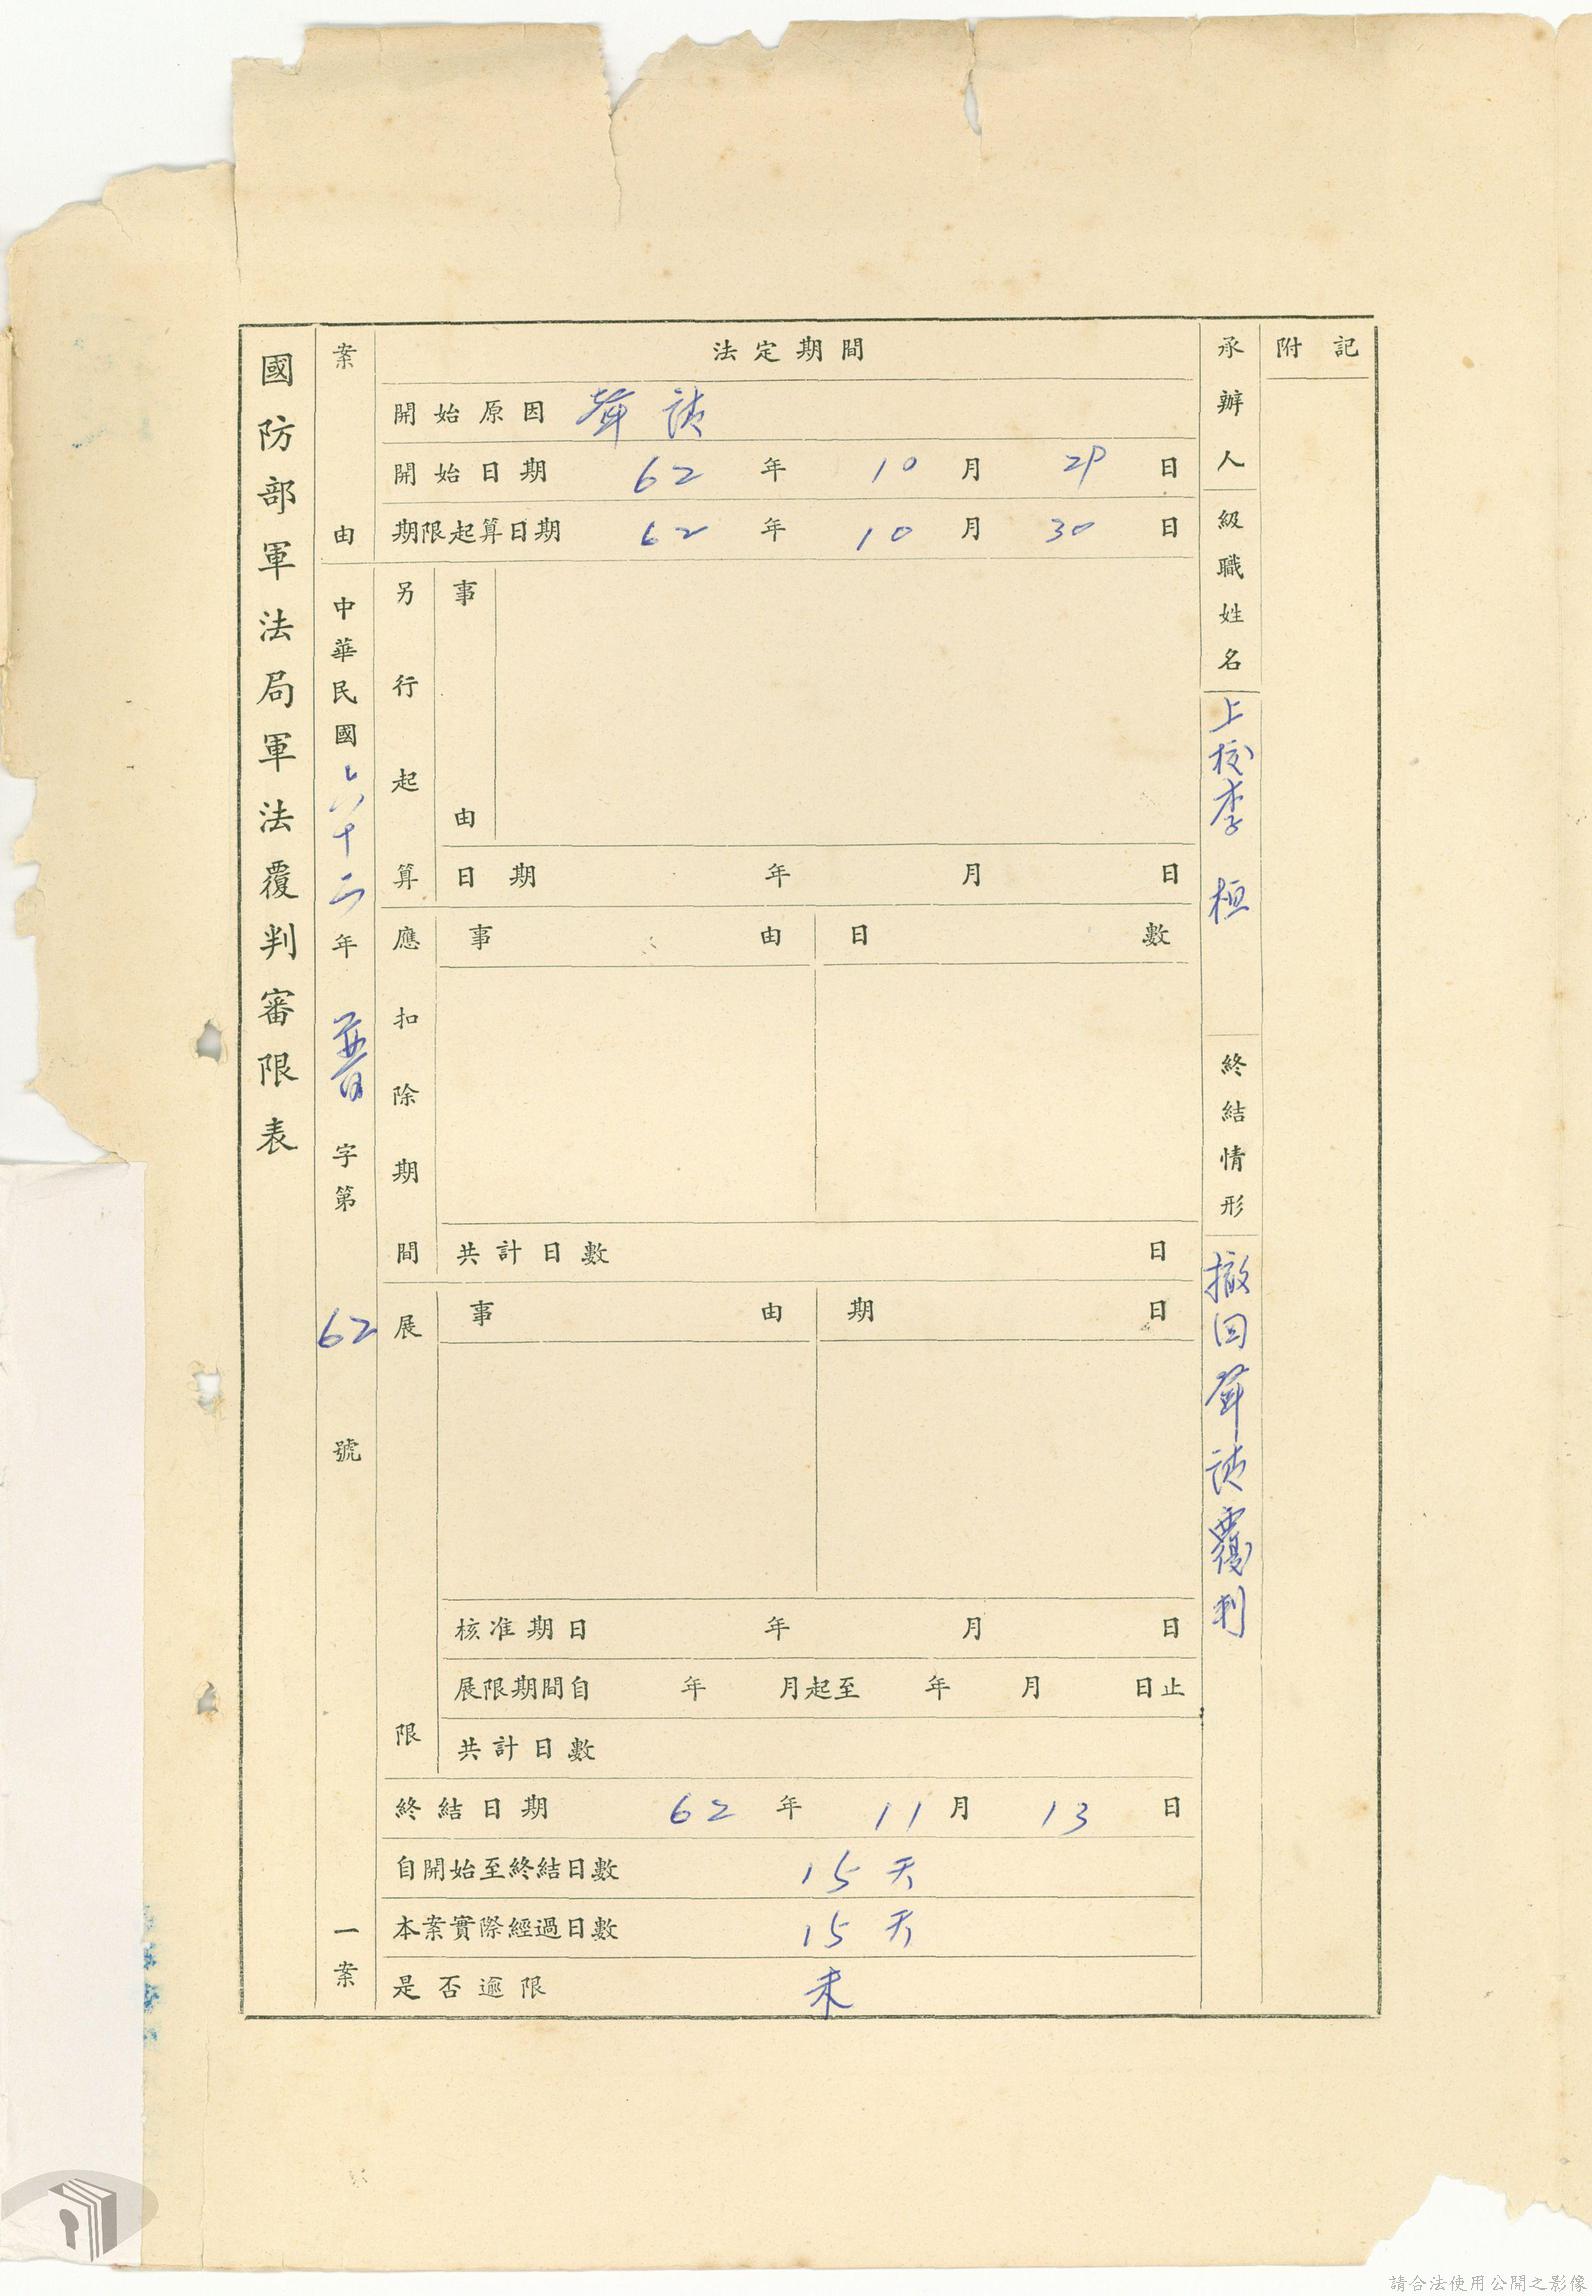 國防部軍法局軍法覆判審限表
案由
中華民國六十二年普字第62號一案
法定期間
開始原因 聲請
開始日期 62年10月29日
期限起算日期 62年10月30日
另行起算
事由
日期 年 月 日
應扣除期間
事由 日數
共計日數 日
展限
事由 期日
核准期日 年 月 日
展限期間自 年 月起至 年 月 日止
共計日數
終結日期 62年11月13日
自開始至終結日數 15天
本案實際經過日數 15天
是否逾限 未
承辦人
級職姓名
上校李桓
終結情形
撤回聲請覆判
附記
請合法使用公開之影像